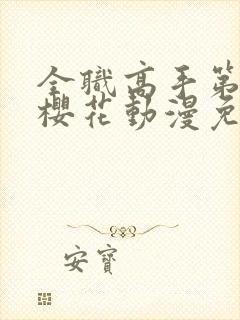 全職高手第
櫻花動漫免
安寶